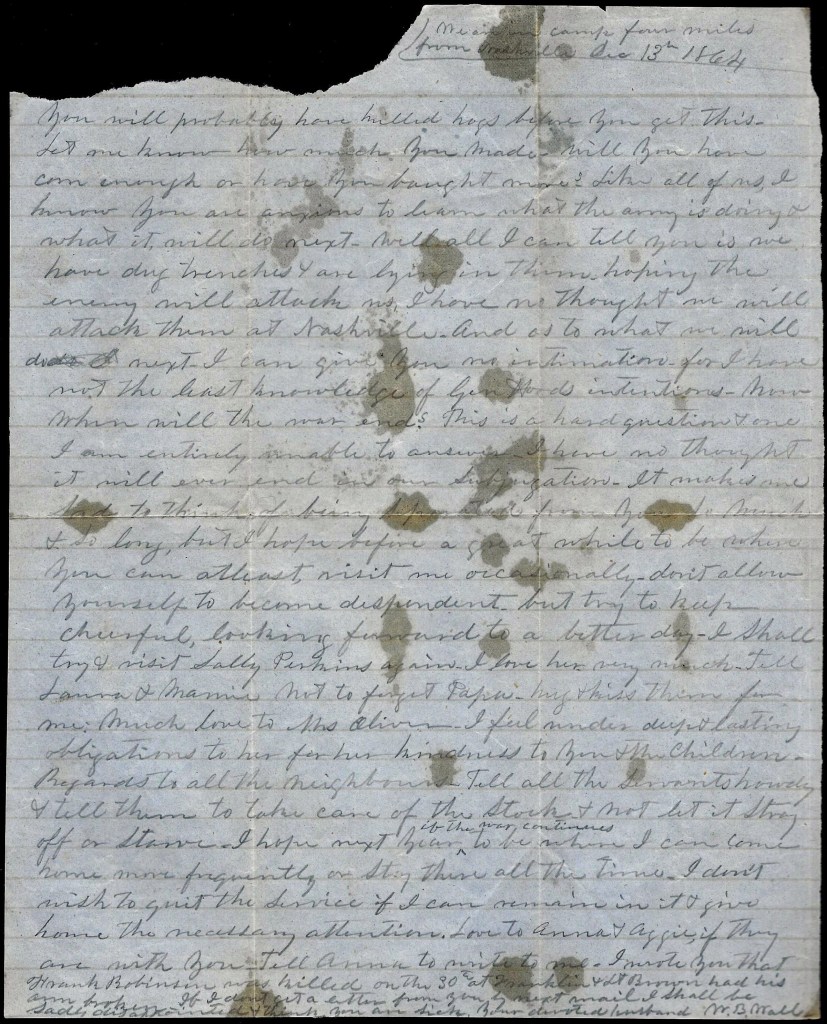 We are in camp four miles
from Nashville Dec 13th 1864
You will probably have killed hogs before you get this-
Let me know how much you made- will you have
corn enough or have you bought more? Like all of us, I
know you are anxious to learn what the army is doing &
what it will do next- well all I can tell you is we
have dug trenches & are lying in them hoping the
enemy will attack us, I have no thought we will
attack them at Nashville- And as to what we will
do next- I can give you no intimation- for I have
not the least knowledge of Gen Hoods intentions- Now
when will the war end? This is a hard question & one
I am entirely unable to answer- I have no thought
it will ever end in our Subjugation- It makes me
sad to think of being separated from you so much
& so long, but I hope before a great while to be where
you can atleast visit me occasionally- dont allow
yourself to become despondent- but try to keep
cheerful, looking forward to a better day- I shall
try & visit Sally Perkins again- I love her very much- Tell
Laura & Mamie not to forget Papa- hug & kiss them for
me. Much love to Mrs Oliver- I feel under deep & lasting
obligations to her for her kindness to you & the children-
Regards to all the neighbours- Tell all the Servants howdy
& tell them to take care of the stock & not let it stray
off or starve- I hope next year if the war continues to be where I can come
home more frequently or stay there all the time- I don't
wish to quit the service if I can remain in it & give
home the necessary attention. Love to Anna & Aggie, if they
are with you- Tell Anna to write to me- I wrote you that
Frank Robinson was killed on the 30th at Franklin & Lt Brown had his
arm broken- If I don't get a letter from you by next mail I shall be
sadly disappointed & think you are sick. Your devoted husband W. B. Wall